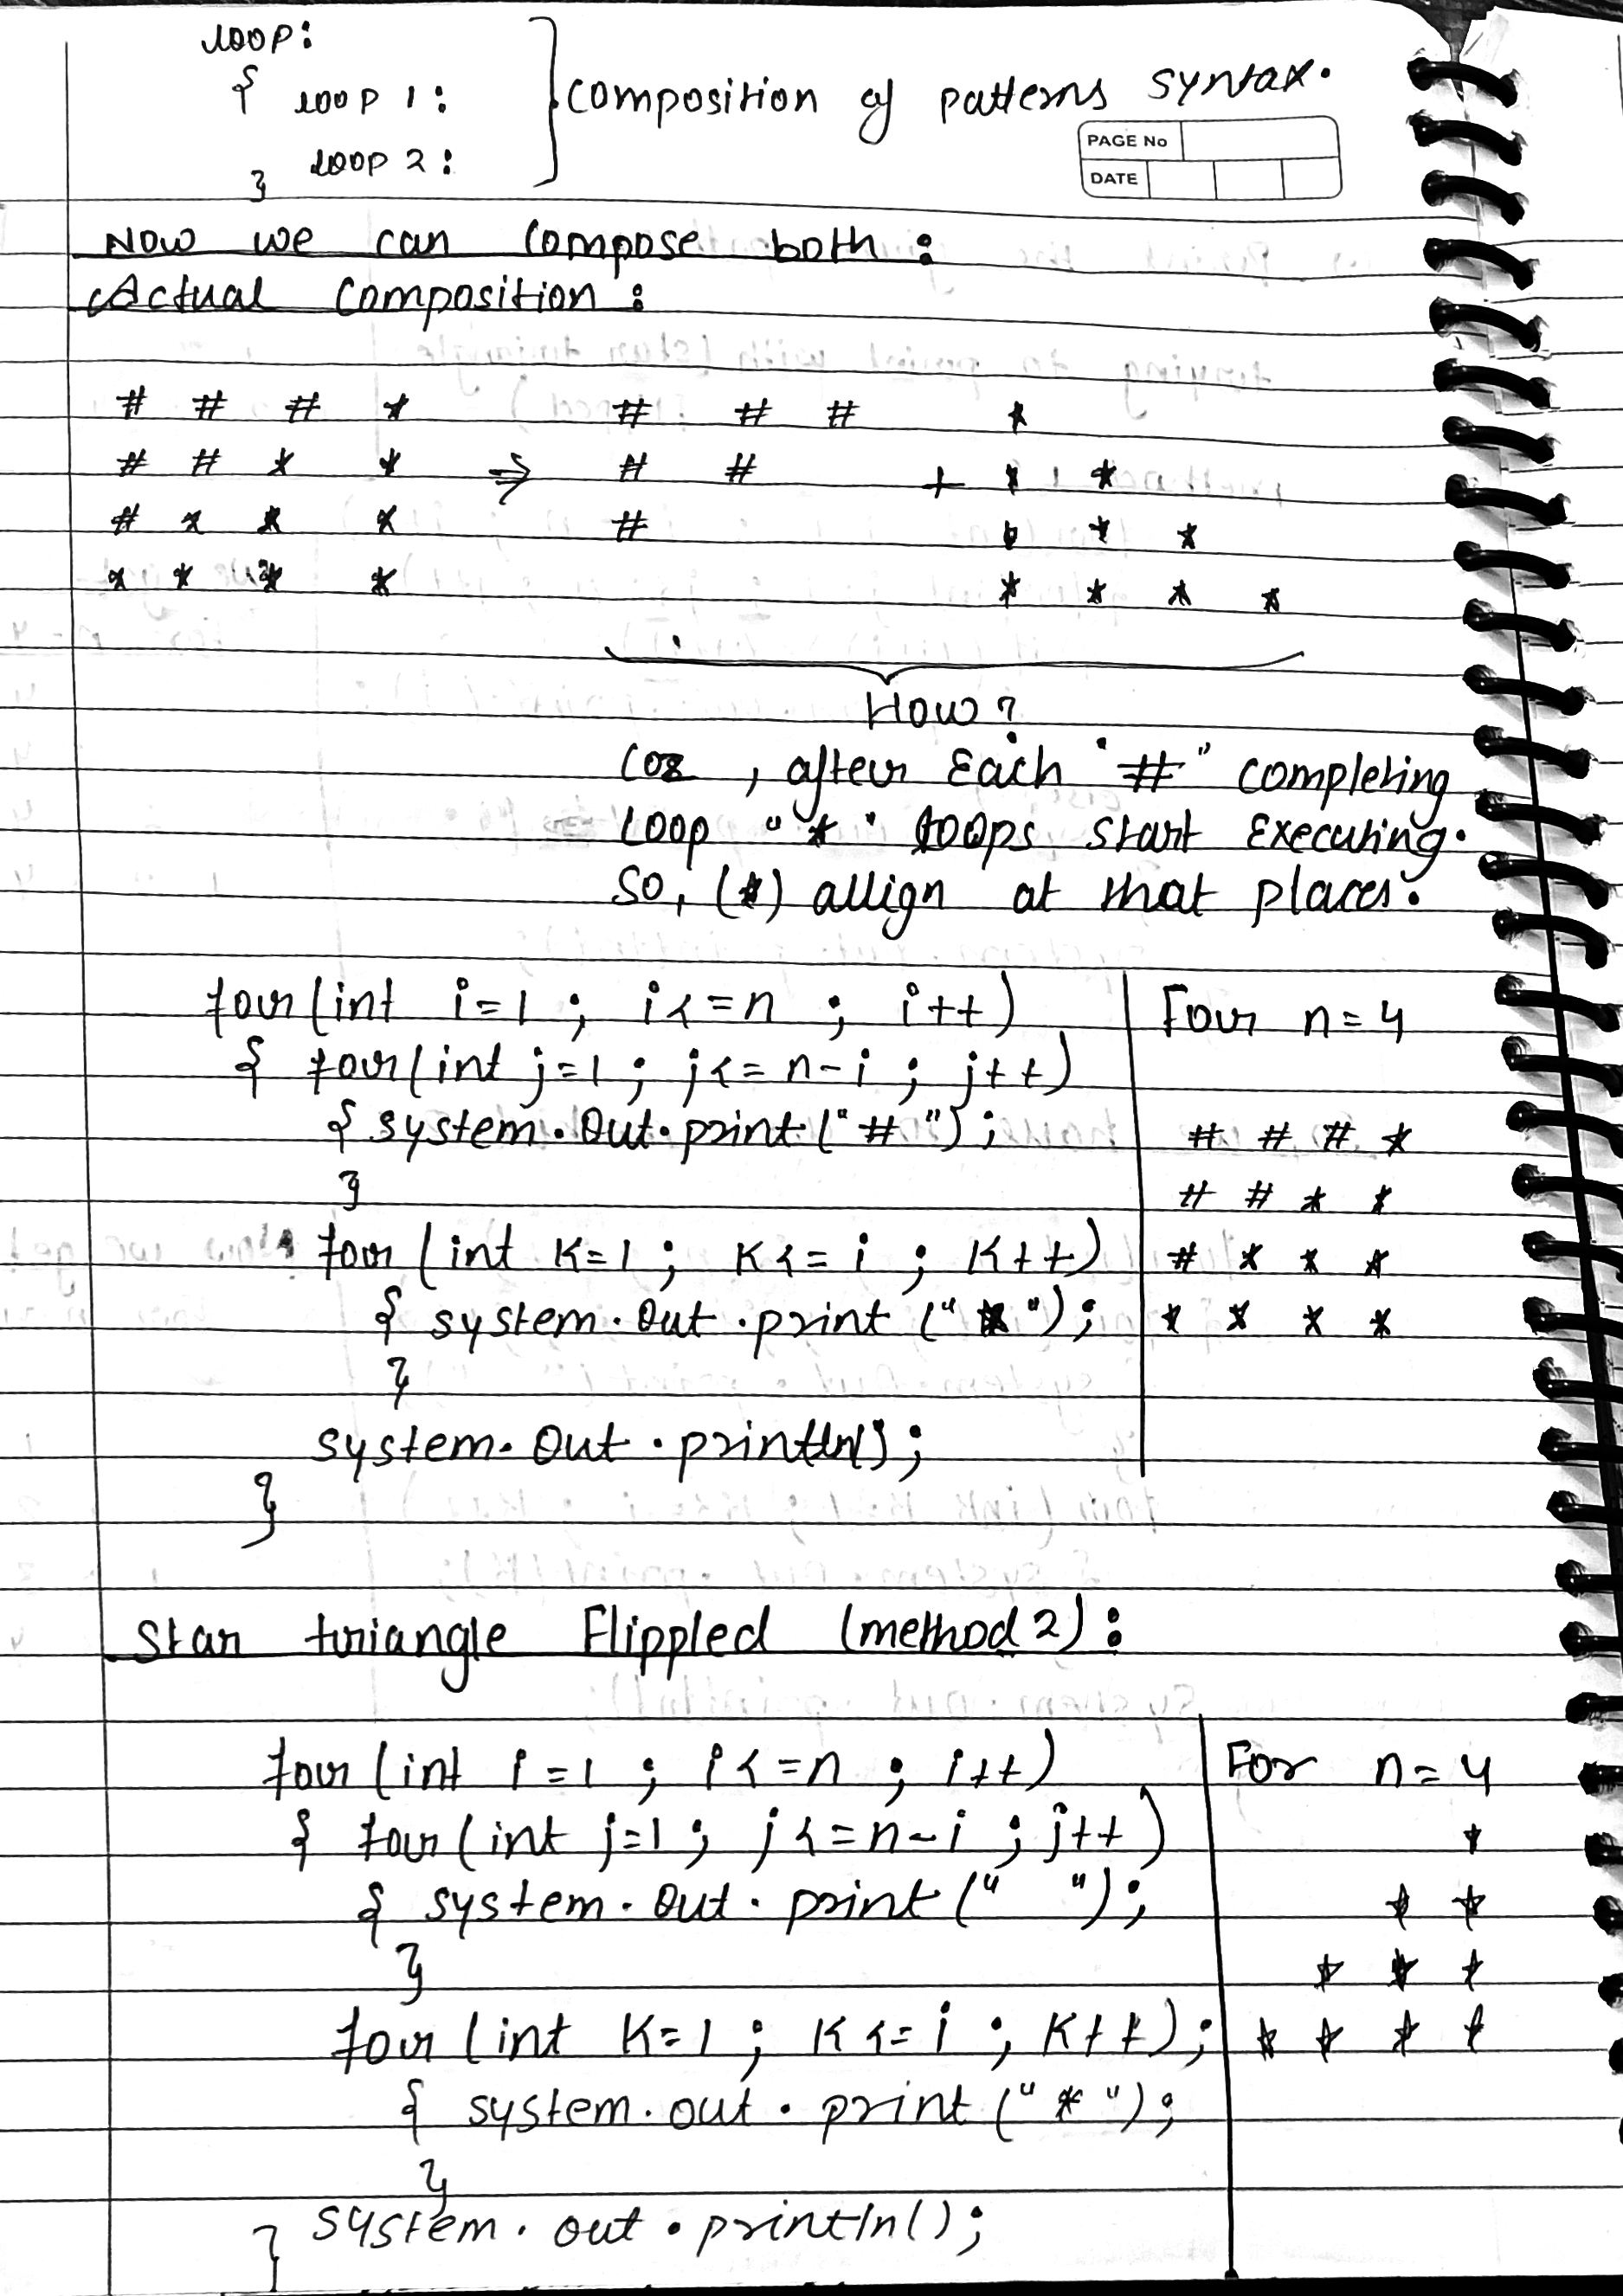 loop:
{ loop 1:
loop 2:
}
composition of patterns syntax.
PAGE No
DATE
Now we can compose both :
Actual Composition :
# # # * ⇒ # # # + *
# # * * # # * *
# * * * # * * *
* * * * * * * *
How?
Coz , after Each "#" completing
Loop "*" loops start Executing.
So, (*) allign at that places.
for(int i=1 ; i<=n ; i++)
{ for(int j=1 ; j<=n-i ; j++)
{ system.out.print("# ");
}
for (int K=1 ; K<=i ; K++)
{ system.out.print ("* ");
}
system.out.println();
}
For n=4
# # # *
# # * *
# * * *
* * * *
Star triangle Flippled (method 2) :
for(int i=1 ; i<=n ; i++)
{ for(int j=1 ; j<=n-i ; j++)
{ system.out.print("  ");
}
for (int K=1 ; K<=i ; K++);
{ system.out.print ("* ");
}
system.out.println();
}
For n=4
*
* *
* * *
* * * *